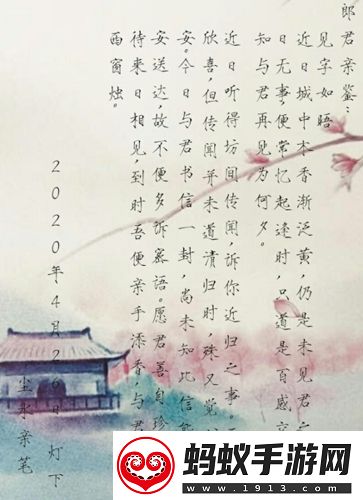 郎君亲鉴:
见字如晤
近日城中木香渐泛黄,仍是未见君之
日无事,便常忆起逢时,只道是百感交
知与君再见为何夕。
近日听得坊间传闻,诉你近归之事。
欣喜,但传闻并未道清归时,殊又觉
安。今日与君书信一封,尚未知此信能
安送达,故不便多诉密语。愿君善自珍
待来日相见,到时吾便亲手添香,与君
西窗烛。
2020年4月26日灯下
尘亲笔
蚂蚁手游网
www.1913.com